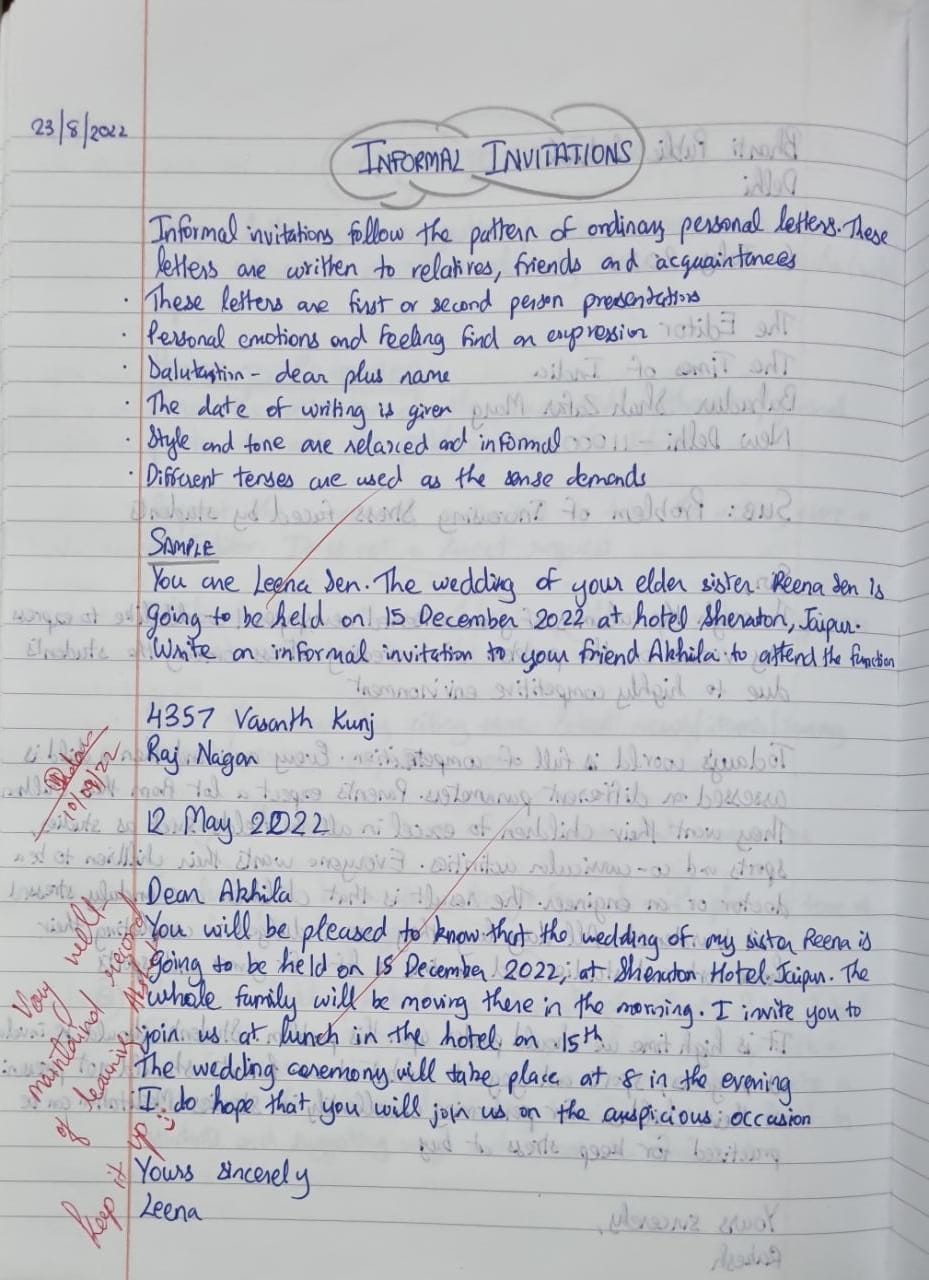 23/8/2022
INFORMAL INVITATIONS
Informal invitations follow the pattern of ordinary personal letters. These
letters are written to relatives, friends and acquaintances
· These letters are first or second person presentations
· Personal emotions and Feeling find an expression
· Salutation - dear plus name
· The date of writing is given
· Style and tone are relaxed and informal
· Different tenses are used as the sense demands
SAMPLE
You are Leena Sen. The wedding of your elder sister Reena Sen is
going to be held on 15 December 2022 at hotel Sheraton, Jaipur.
Write an informal invitation to your friend Akhila to attend the function
4357 Vasanth Kunj
Raj Nagar
10/09/22
12 May 2022
Dear Akhila
You will be pleased to know that the wedding of my sister Reena is
going to be held on 15 December 2022, at Sheraton Hotel Jaipur. The
whole family will be moving there in the morning. I invite you to
join us at lunch in the hotel on 15th
The wedding ceremony will take place at 8 in the evening
I do hope that you will join us on the auspicious occasion
Yours sincerely
Leena
Very well
maintained record
of learning
Keep it up :)